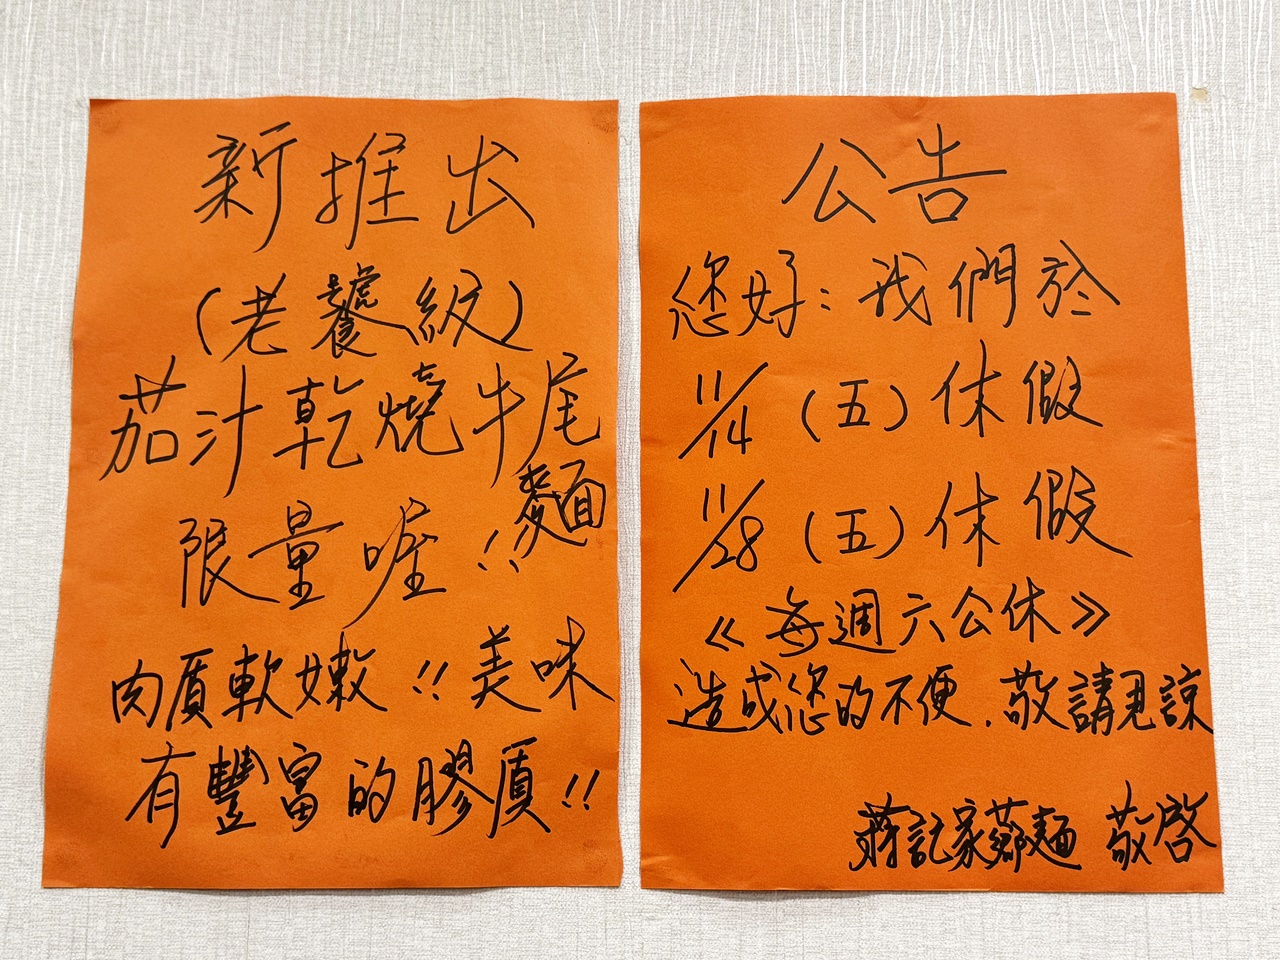 新推出
(老饕級)
茄汁乾燒牛尾
麵
限量喔!!
肉質軟嫩!!美味
有豐富的膠質!!
公告
您好:我們於
11/14(五)休假
11/28(五)休假
《每週六公休》
造成您的不便.敬請見諒
蔣記家薌麵 敬啓